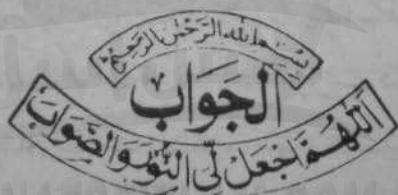 بسم الله الرحمن الرحیم
الجَوَابُ
اَللّٰهُمَّ اجْعَلْ لِّی النُّوْرَ وَالصَّوَابَ